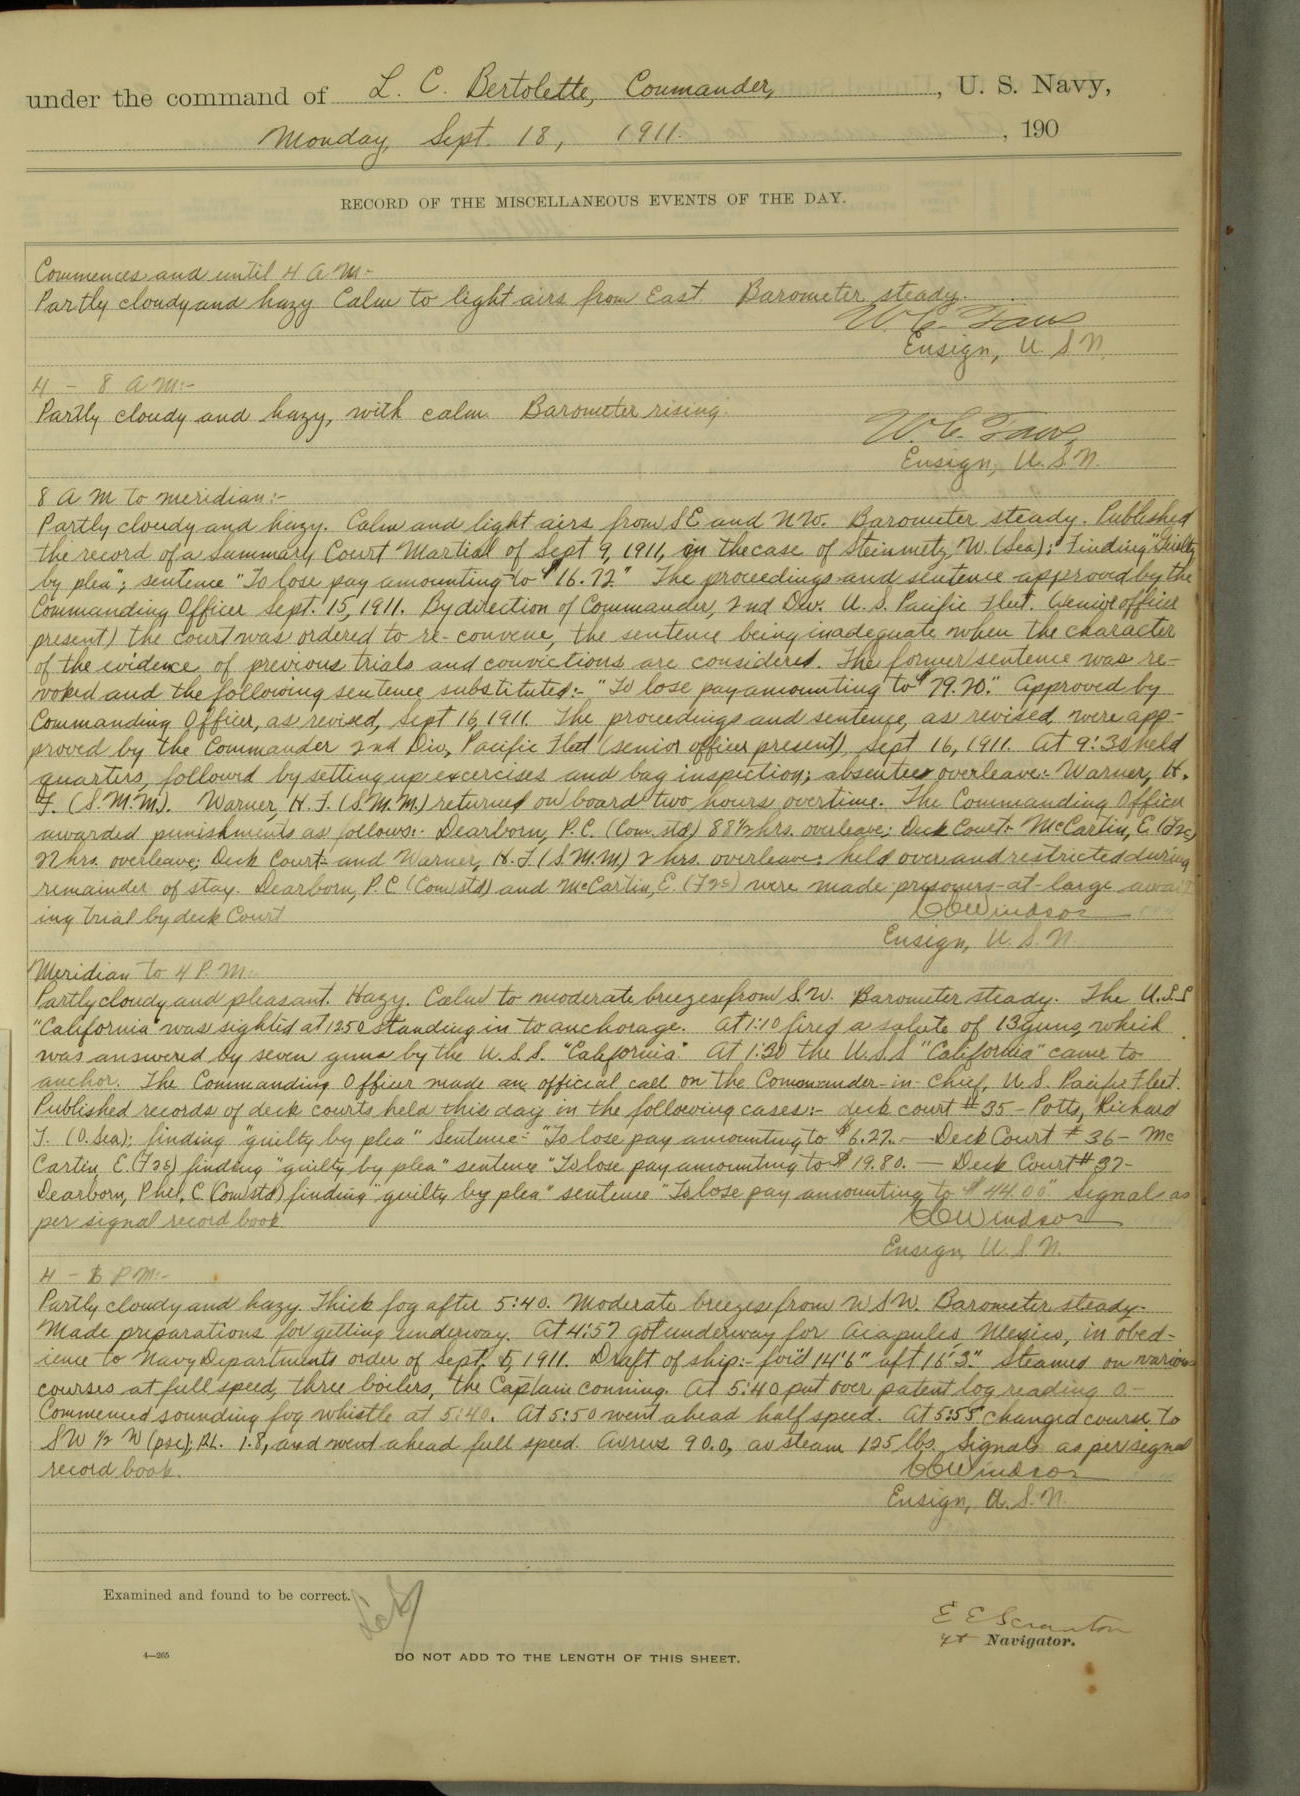 under the command of L. C. Bertolette, Commander, , U. S. Navy,
Monday, Sept. 18, 1911. , 190
RECORD OF THE MISCELLANEOUS EVENTS OF THE DAY.
Commences and until 4 A M:-
Partly cloudy and hazy Calm to light airs from East. Barometer steady.
W. C. Faus
Ensign, U S N.
4 - 8 A M:-
Partly cloudy and hazy, with calm. Barometer rising.
W. C. Faus,
Ensign, U. S. N.
8 A M to meridian:-
Partly cloudy and hazy. Calm and light airs from SE and NW. Barometer steady. Published
the record of a Summary Court Martial of Sept 9, 1911, in the case of Steinmetz, W. (Sea); Finding "Guilty
by plea"; sentence "To lose pay amounting to $16.72" The proceedings and sentence approved by the
Commanding Officer Sept. 15, 1911. By direction of Commander, 2nd Div. U. S. Pacific Fleet. (senior officer
present) the court was ordered to re-convene, the sentence being inadequate when the character
of the evidence of previous trials and convictions are considered. The former sentence was re-
voked and the following sentence substituted:- "To lose pay amounting to $29.20." Approved by
Commanding Officer, as revised, Sept 16, 1911. The proceedings and sentence, as revised, were app-
proved by the Commander 2nd Div, Pacific Fleet (senior officer present) Sept 16, 1911. At 9:30 held
quarters, followed by setting up excercises and bag inspection; absentees overleave:- Warner, H.
F. (S.M.M.). Warner, H. F. (S.M.M.) returned on board two hours overtime. The Commanding Officer
awarded punishments as follows:- Dearborn, P. C. (Com. std) 88½ hrs. overleave; Deck Court:- McCartin, E (F2c)
22 hrs. overleave; Deck Court:- and Warner, H. F (S.M.M) 2 hrs. overleave: held over and restricted during
remainder of stay. Dearborn, P.C (Com std) and McCartin, E. (F2c) were made prisoners-at-large await
ing trial by deck Court
Windsor
Ensign, U. S. N
Meridian to 4 P. M:-
Partly cloudy and pleasant. Hazy. Calm to moderate breezes from S.W. Barometer steady. The U.S.S
"California" was sighted at 1250 standing in to anchorage. At 1:10 fired a salute of 13 guns, which
was answered by seven guns by the U. S. S. "California." At 1:30 the U.S.S "California" came to
anchor. The Commanding Officer made an official call on the Commander-in-chief, U. S. Pacific Fleet.
Published records of deck courts held this day in the following cases:- deck court # 35 - Potts, Richard
J. (O. Sea); finding "guilty by plea" Sentence:- "To lose pay amounting to $6.27. — Deck Court # 36 - Mc
Cartin, E. (F2c) finding "guilty by plea" sentence "To lose pay amounting to $19.80. — Deck Court # 37-
Dearborn, Phel. C. (Com std) finding "guilty by plea" sentence "To lose pay amounting to $44.00" Signals as
per signal record book.
Windsor
Ensign, U. S. N.
4 - 6 P M:-
Partly cloudy and hazy. Thick fog after 5:40. Moderate breezes from W S W. Barometer steady.
Made preparations for getting underway. At 4:57 got underway for Acapulco, Mexico, in obed-
ience to Navy Departments order of Sept. 5, 1911. Draft of ship:- for'd 14'6" aft 16'3". Steamed on various
courses at full speed, three boilers, the Captain conning. At 5:40 put over patent log reading 0.-
Commenced sounding fog whistle at 5:40. At 5:50 went ahead half speed. At 5:55 changed course to
SW ½ W (psc); P.L. 1.8, and went ahead full speed. Av revs. 90.0, av steam 125 lbs. Signals as per signal
record book.
Windsor
Ensign, U. S. N.
Examined and found to be correct.
E E Scranton
Navigator.
4—265
DO NOT ADD TO THE LENGTH OF THIS SHEET.